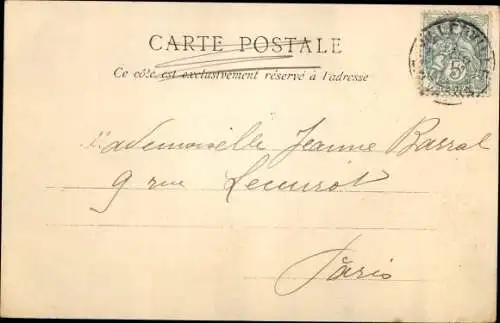 CARTE POSTALE
Ce côté est exclusivement réservé à l'adresse
Mademoiselle Jeanne Barral
9 rue
Paris
5